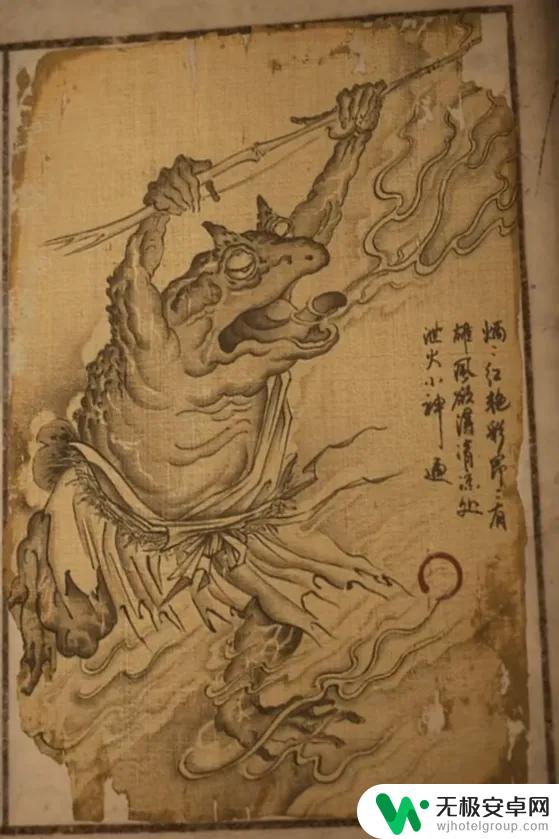 红艳彩昂々有
雄风欲得清凉处
泄火小神通
无极安卓网
wjhotelgroup.com